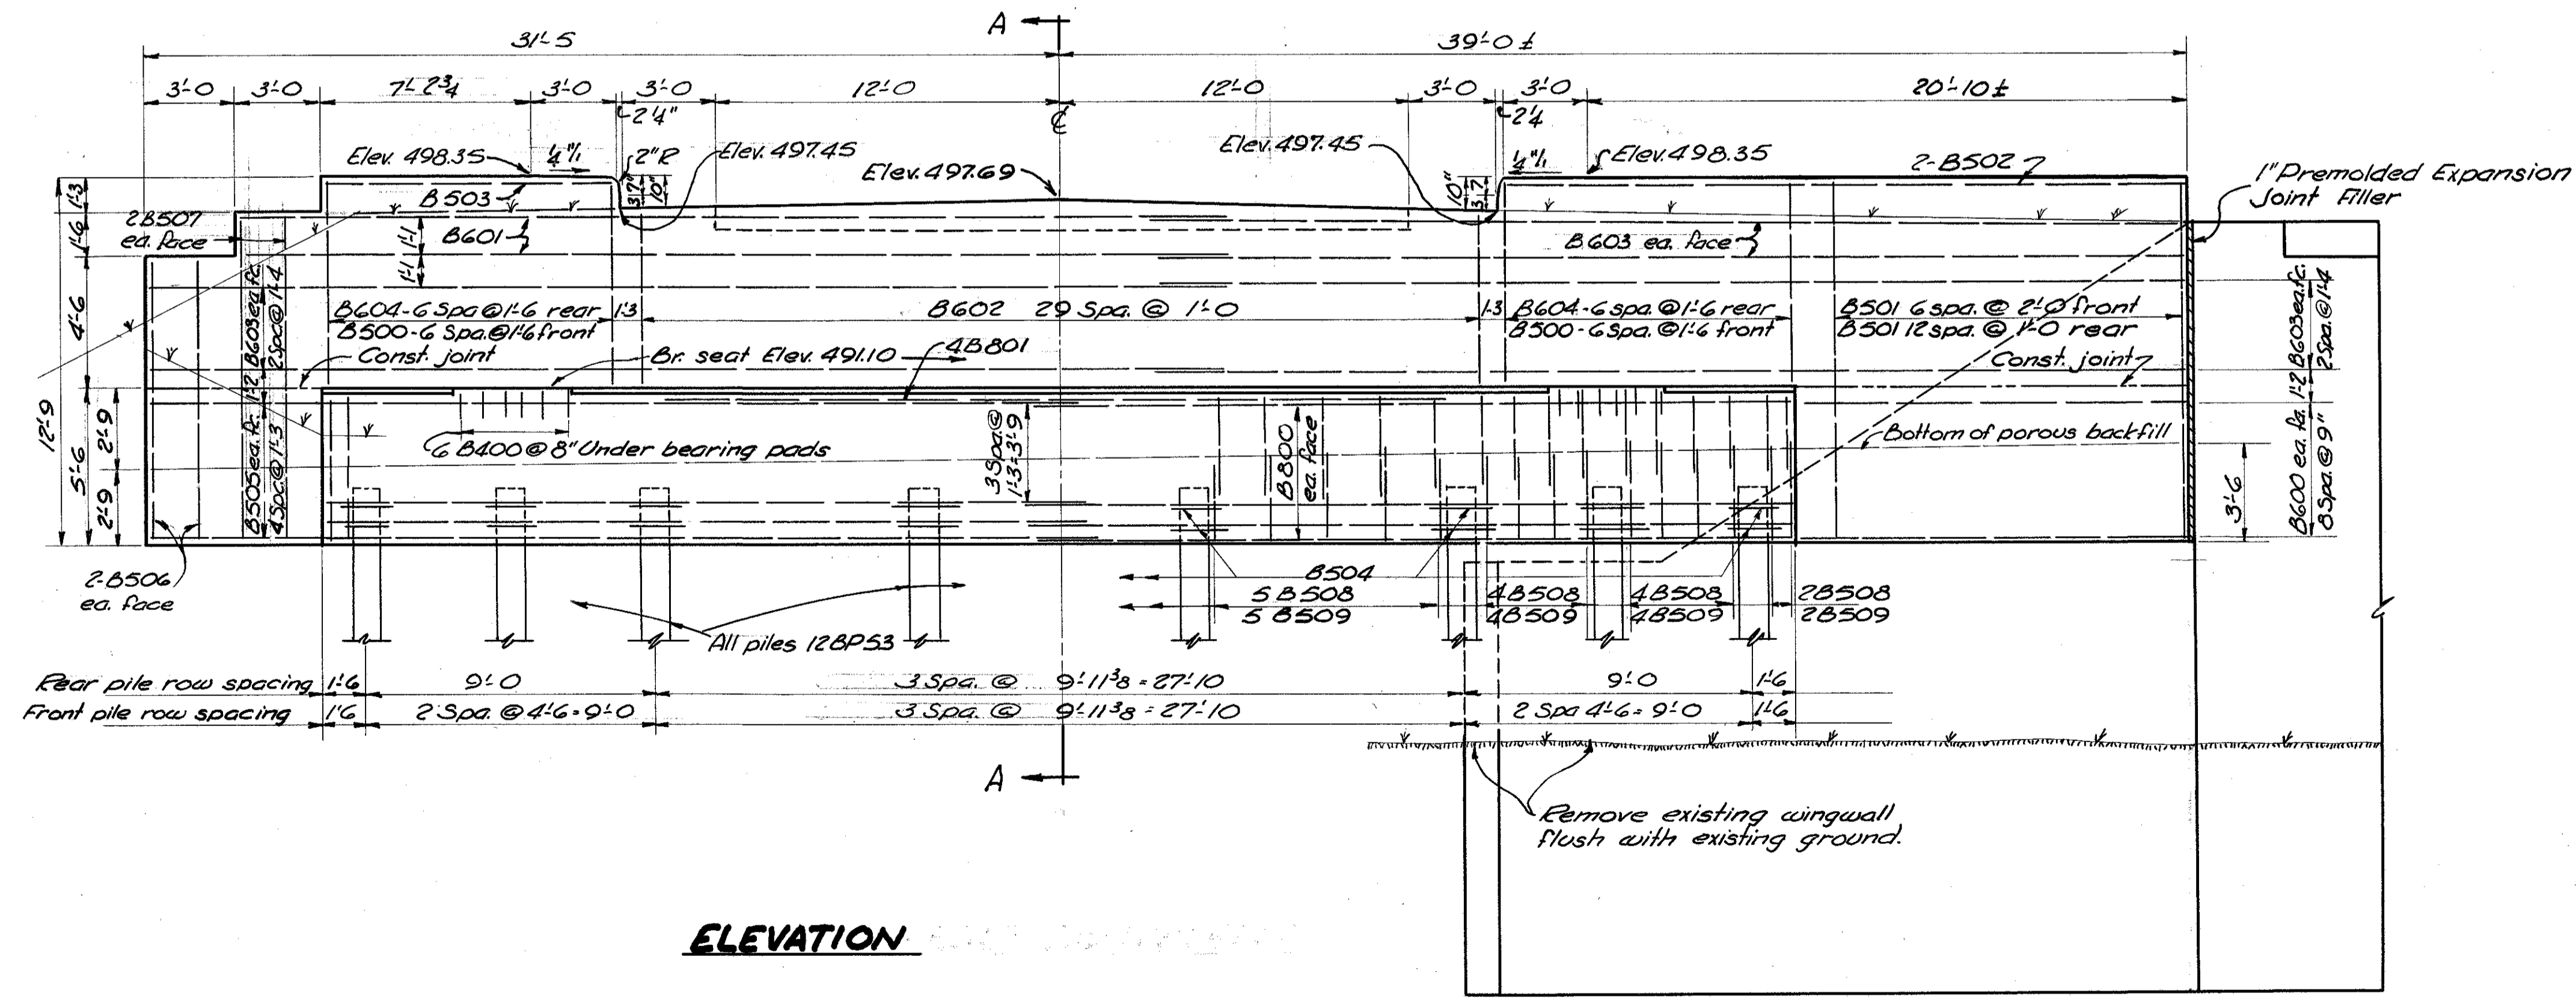 A
31'-5
39'-0 ±
3'-0 3'-0 7'-2¾ 3'-0 3'-0 12'-0 12'-0 3'-0 3'-0 20'-10 ±
2¼" ℄ 2¼
Elev. 498.35 ¼"/1 2"R Elev. 497.45 Elev. 497.69 Elev. 497.45 ¼"/1 Elev. 498.35 2-B502
1" Premolded Expansion
Joint Filler
1'-3 B503 10" 10"
2B507
ea. face
1'-6 1'-1 B601 B603 ea. face
1'-1
4'-6
B604-6 Spa @ 1'-6 rear 1'-3 B602 29 Spa. @ 1'-0 1'-3 B604-6 spa. @ 1'-6 rear B501 6 spa. @ 2'-0 front
B500-6 Spa. @ 1'-6 front B500-6 Spa. @ 1'-6 front B501 12 spa. @ 1'-0 rear
Const. joint Br. seat Elev. 491.10 4B801 Const. joint
B603 ea. fc.
2 Spc @ 1'-4
1'-2
B505 ea. fc.
4 Spc. @ 1'-3
B603 ea. fc.
2 Spa. @ 1'-4
1'-2
B600 ea. fa.
8 Spa. @ 9"
12'-9
5'-6
2'-9
2'-9
6 B400 @ 8" Under bearing pads
3 Spa. @
1'-3=3'-9
B800
ea. face
Bottom of porous backfill
3'-6
2-B506
ea. face
B504
5 B508 4B508 4B508 2B508
5 B509 4B509 4B509 2B509
All piles 12BP53
Rear pile row spacing 1'-6 9'-0 3 Spa. @ 9'-11⅜ = 27'-10 9'-0 1'-6
Front pile row spacing 1'6 2 Spa. @ 4'-6 = 9'-0 3 Spa. @ 9'-11⅜ = 27'-10 2 Spa 4'-6 = 9'-0 1'-6
A
Remove existing wingwall
flush with existing ground.
ELEVATION